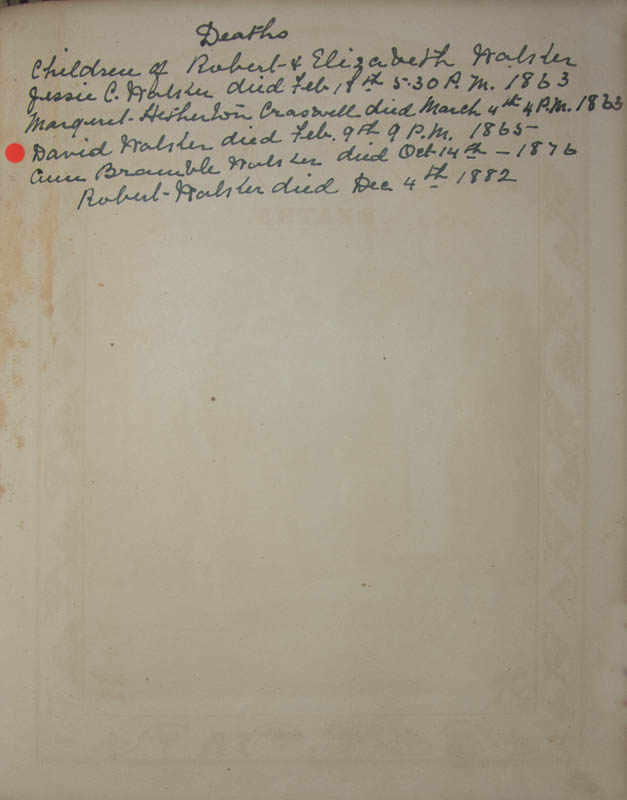 Deaths
Children of Robert & Elizabeth Walster
Jessie C. Walster died Feb. 18th 5-30 P.M. 1863
Margaret Hetherton Craswell died March 4th 4 P.M. 1863
David Walster died Feb. 9th 9 P.M. 1865-
Ann Bramble Walster died Oct 14th - 1876
Robert Walster died Dec 4th 1882